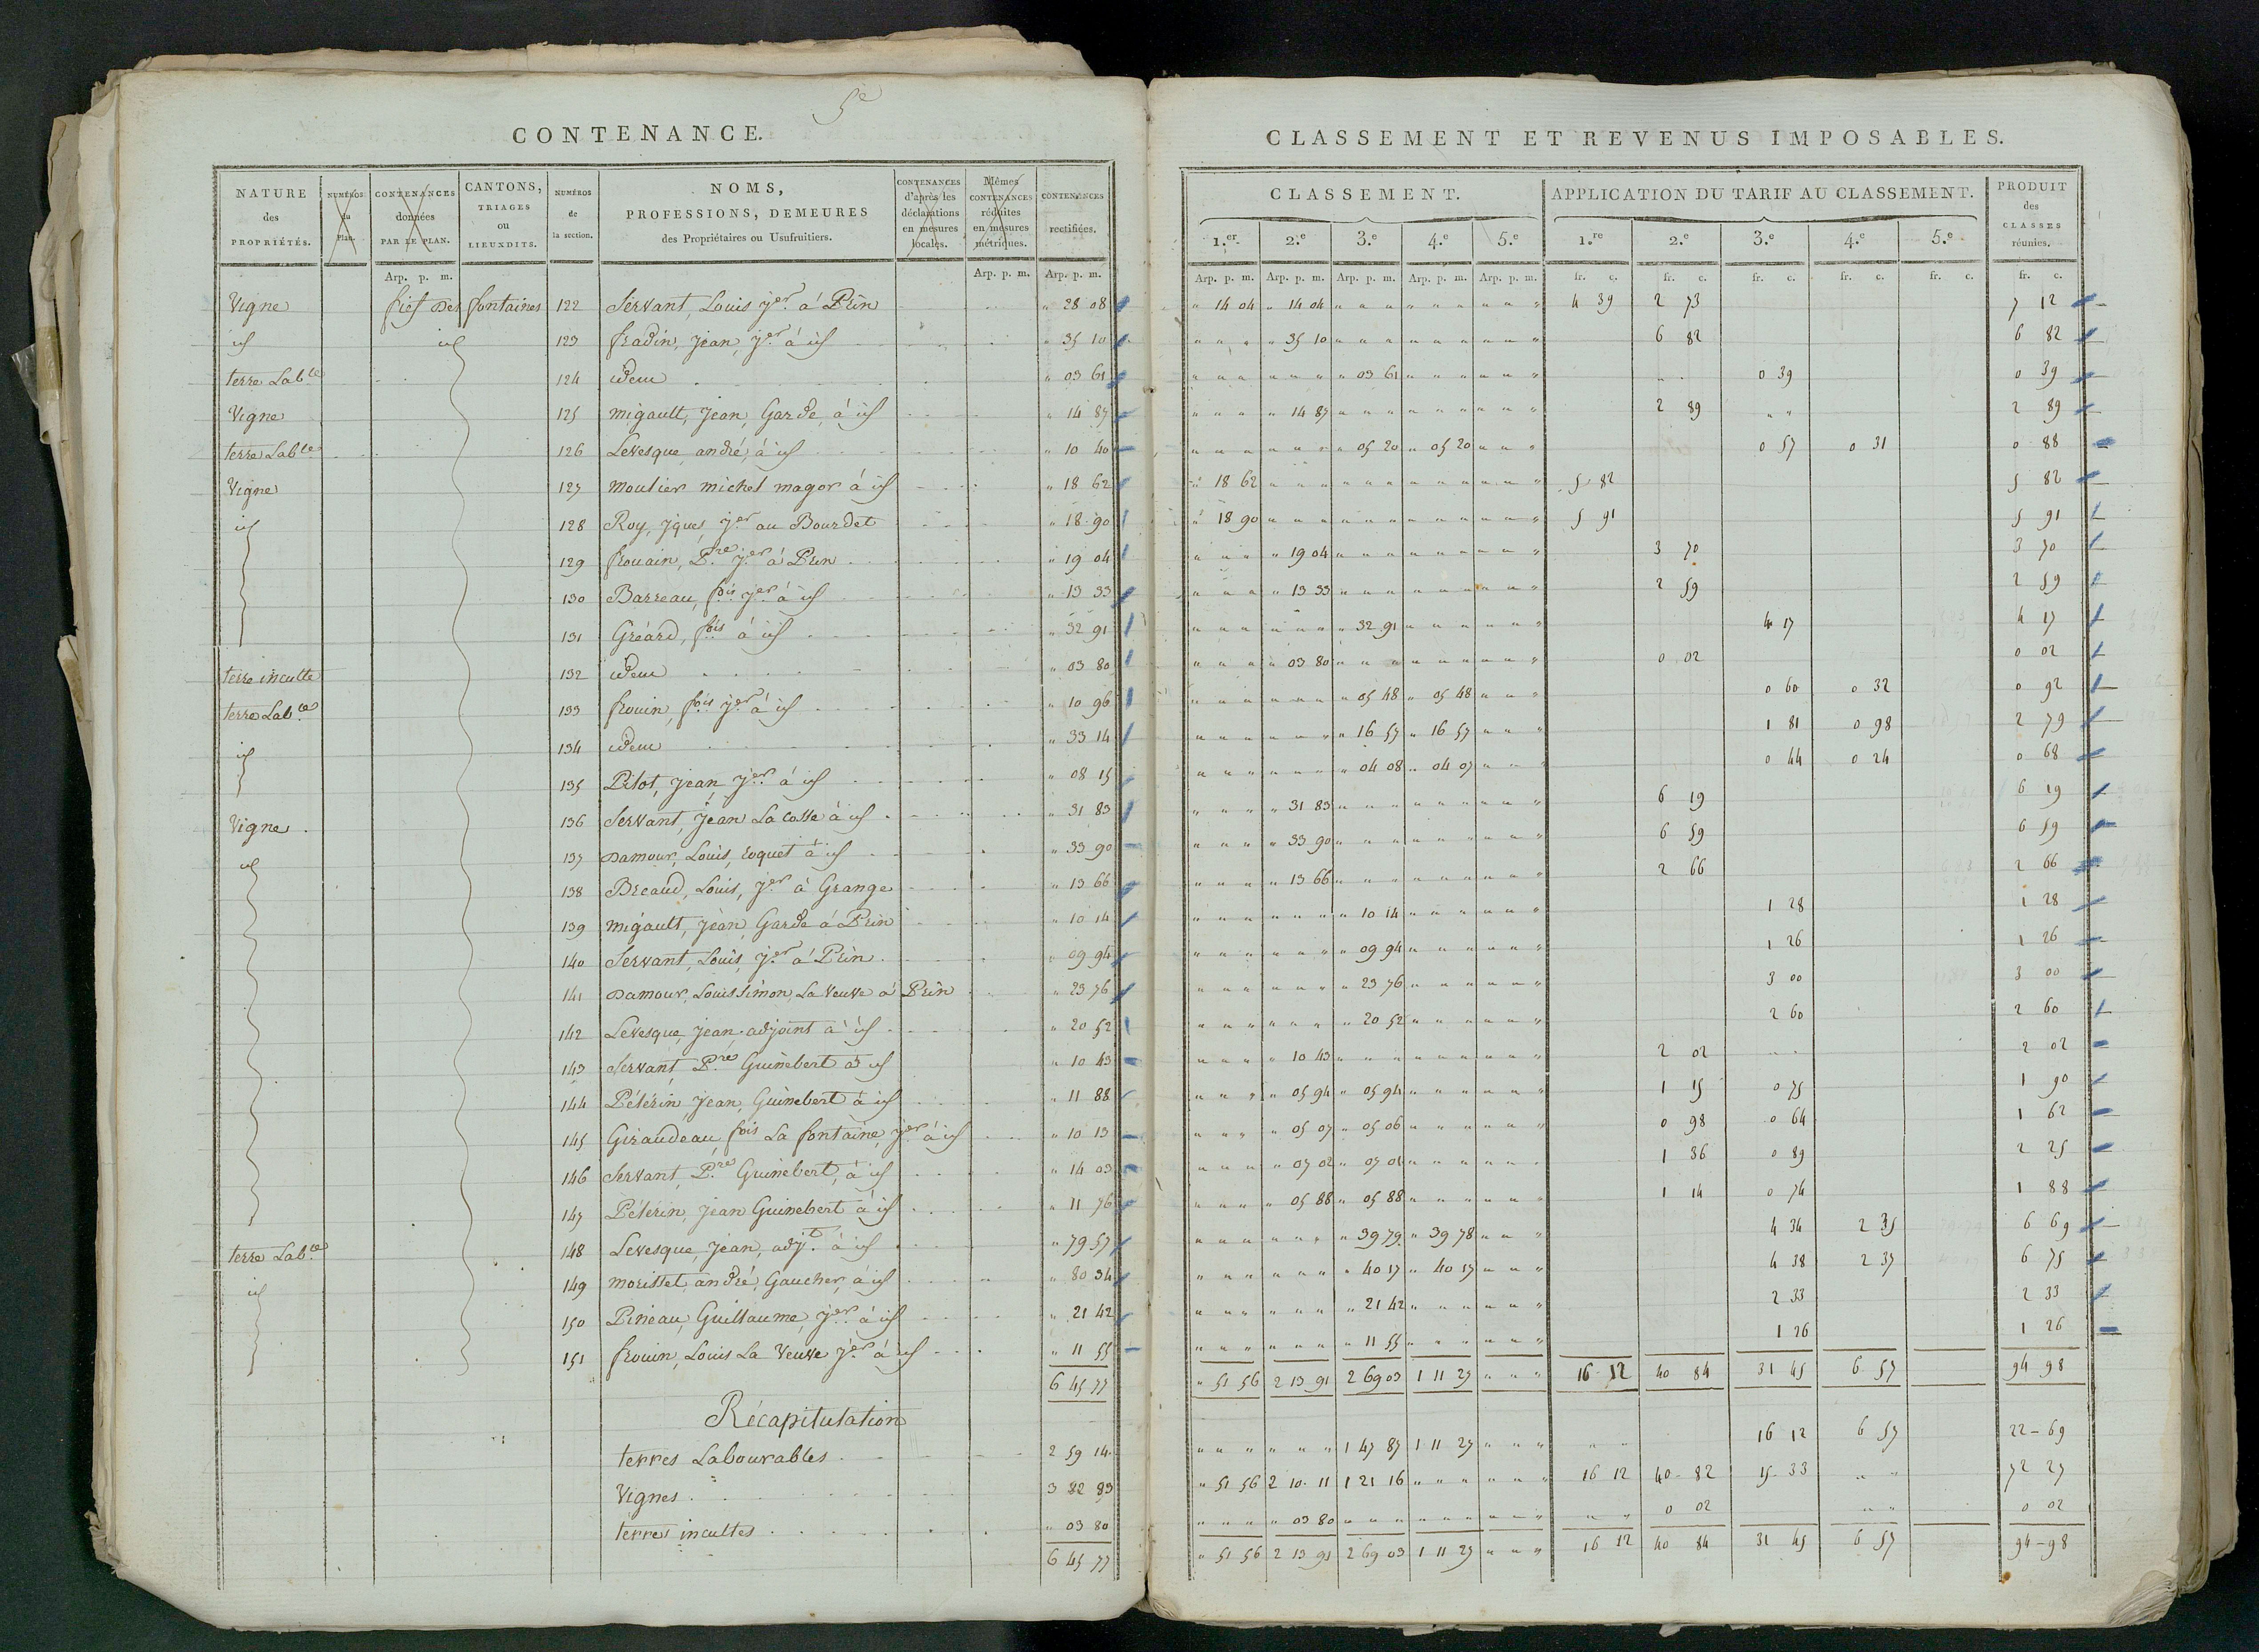 5e
CONTENANCE.
NATURE des PROPRIÉTÉS. NUMÉROS du Plan. CONTENANCES données PAR LE PLAN. CANTONS, TRIAGES ou LIEUXDITS. NUMÉROS de la section. NOMS, PROFESSIONS, DEMEURES des Propriétaires ou Usufruitiers. CONTENANCES d'après les déclarations en mesures locales. Mêmes CONTENANCES réduites en mesures métriques. CONTENANCES rectifiées.
Arp. p. m. Arp. p. m. Arp. p. m.
Vigne fief des fontaines 122 Servant, Louis jer. à Prin " 28 08
id id 123 fradin, jean, jer. à id " 35 10
terre Lable 124 idem " 03 61
Vigne 125 migault, jean, Garde, à id " 14 87
terre Lable 126 Levesque, andré, à id " 10 40
Vigne 127 moulier michel magor à id " 18 62
id 128 Roy, jques, jer au Bourdet " 18 90
129 frouain, Pre. jer. à Prin " 19 04
130 Barreau, fois jer. à id " 13 33
131 Gréard, fois à id " 32 91
terre inculte 132 idem " 03 80
terre Lable 133 frouin, fois jer à id " 10 96
id 134 idem " 33 14
135 Pilot, jean, jer. à id " 08 15
Vigne 136 Servant, jean La cosse à id " 31 83
id 137 Damour, Louis, roquet à id " 33 90
138 Breaud, Louis, jer. à Grange " 13 66
139 migault, jean, Garde à Prin " 10 14
140 Servant, Louis, jer. à Prin " 09 94
141 Damour, Louis Simon, La Veuve à Prin " 23 76
142 Levesque, jean adjoint à id " 20 52
143 Servant Pre. Guinebert à id " 10 43
144 Pélérin, jean, Guinebert à id " 11 88
145 Giraudeau, fois La fontaine, jer à id " 10 13
146 Servant, Pre. Guinebert, à id " 14 03
147 Pélérin, jean Guinebert à id " 11 76
terre Lable 148 Levesque, jean, adjt. à id " 79 57
id 149 morisset, andré, Gaucher, à id " 80 34
150 Pineau, Guillaume, jer. à id " 21 42
151 frouin, Louis La Veuve jer. à id " 11 55
6 45 77
Récapitulation
terres Labourables 2 59 14
Vignes 3 82 83
terres incultes " 03 80
6 45 77
CLASSEMENT ET REVENUS IMPOSABLES.
CLASSEMENT. APPLICATION DU TARIF AU CLASSEMENT. PRODUIT des CLASSES réunies.
1.er 2.e 3.e 4.e 5.e 1.re 2.e 3.e 4.e 5.e
Arp. p. m. Arp. p. m. Arp. p. m. Arp. p. m. Arp. p. m. fr. c. fr. c. fr. c. fr. c. fr. c. fr. c.
" 14 04 " 14 04 " " " " " " " " " 4 39 2 73 7 12
" " " " 35 10 " " " " " " " " " 6 82 6 82
" " " " " " " 03 61 " " " " " " 0 39 0 39
" " " " 14 87 " " " " " " " " " 2 89 " " 2 89
" " " " " " " 05 20 " 05 20 " " " 0 57 0 31 0 88
" 18 62 " " " " " " " " " " " " 5 82 5 82
" 18 90 " " " " " " " " " " " " 5 91 5 91
" " " " 19 04 " " " " " " " " " 3 70 3 70
" " " " 13 33 " " " " " " " " " 2 59 2 59
" " " " " " " 32 91 " " " " " " 4 17 4 17
" " " " 03 80 " " " " " " " " " 0 02 0 02
" " " " " " " 05 48 " 05 48 " " " 0 60 0 32 0 92
" " " " " " " 16 57 " 16 57 " " " 1 81 0 98 2 79
" " " " " " " 04 08 " 04 07 " " " 0 44 0 24 0 68
" " " " 31 83 " " " " " " " " " 6 19 6 19
" " " " 33 90 " " " " " " " " " 6 59 6 59
" " " " 13 66 " " " " " " " " " 2 66 2 66
" " " " " " " 10 14 " " " " " " 1 28 1 28
" " " " " " " 09 94 " " " " " " 1 26 1 26
" " " " " " " 23 76 " " " " " " 3 00 3 00
" " " " " " " 20 52 " " " " " " 2 60 2 60
" " " " 10 43 " " " " " " " " " 2 02 " " 2 02
" " " " 05 94 " 05 94 " " " " " " 1 15 0 75 1 90
" " " " 05 07 " 05 06 " " " " " " 0 98 0 64 1 62
" " " " 07 02 " 07 01 " " " " " " 1 36 0 89 2 25
" " " " 05 88 " 05 88 " " " " " " 1 14 0 74 1 88
" " " " " " " 39 79 " 39 78 " " " 4 34 2 35 6 69
" " " " " " " 40 17 " 40 17 " " " 4 38 2 37 6 75
" " " " " " " 21 42 " " " " " " 2 33 2 33
" " " " " " " 11 55 " " " " " " 1 26 1 26
" 51 56 2 13 91 2 69 03 1 11 27 " " " 16 12 40 84 31 45 6 57 94 98
" " " " " " 1 47 87 1 11 27 " " " " " 16 12 6 57 22 - 69
" 51 56 2 10 11 1 21 16 " " " " " " 16 12 40 - 82 15 - 33 " " 72 27
" " " " 03 80 " " " " " " " " " " " 0 02 " " 0 02
" 51 56 2 13 91 2 69 03 1 11 27 " " " 16 12 40 84 31 45 6 57 94 - 98